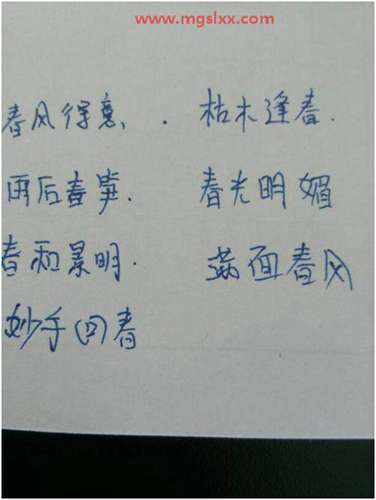 www.mgslxx.com
春风得意、. 枯木逢春.
雨后春笋. 春光明媚
春和景明. 满面春风
妙手回春